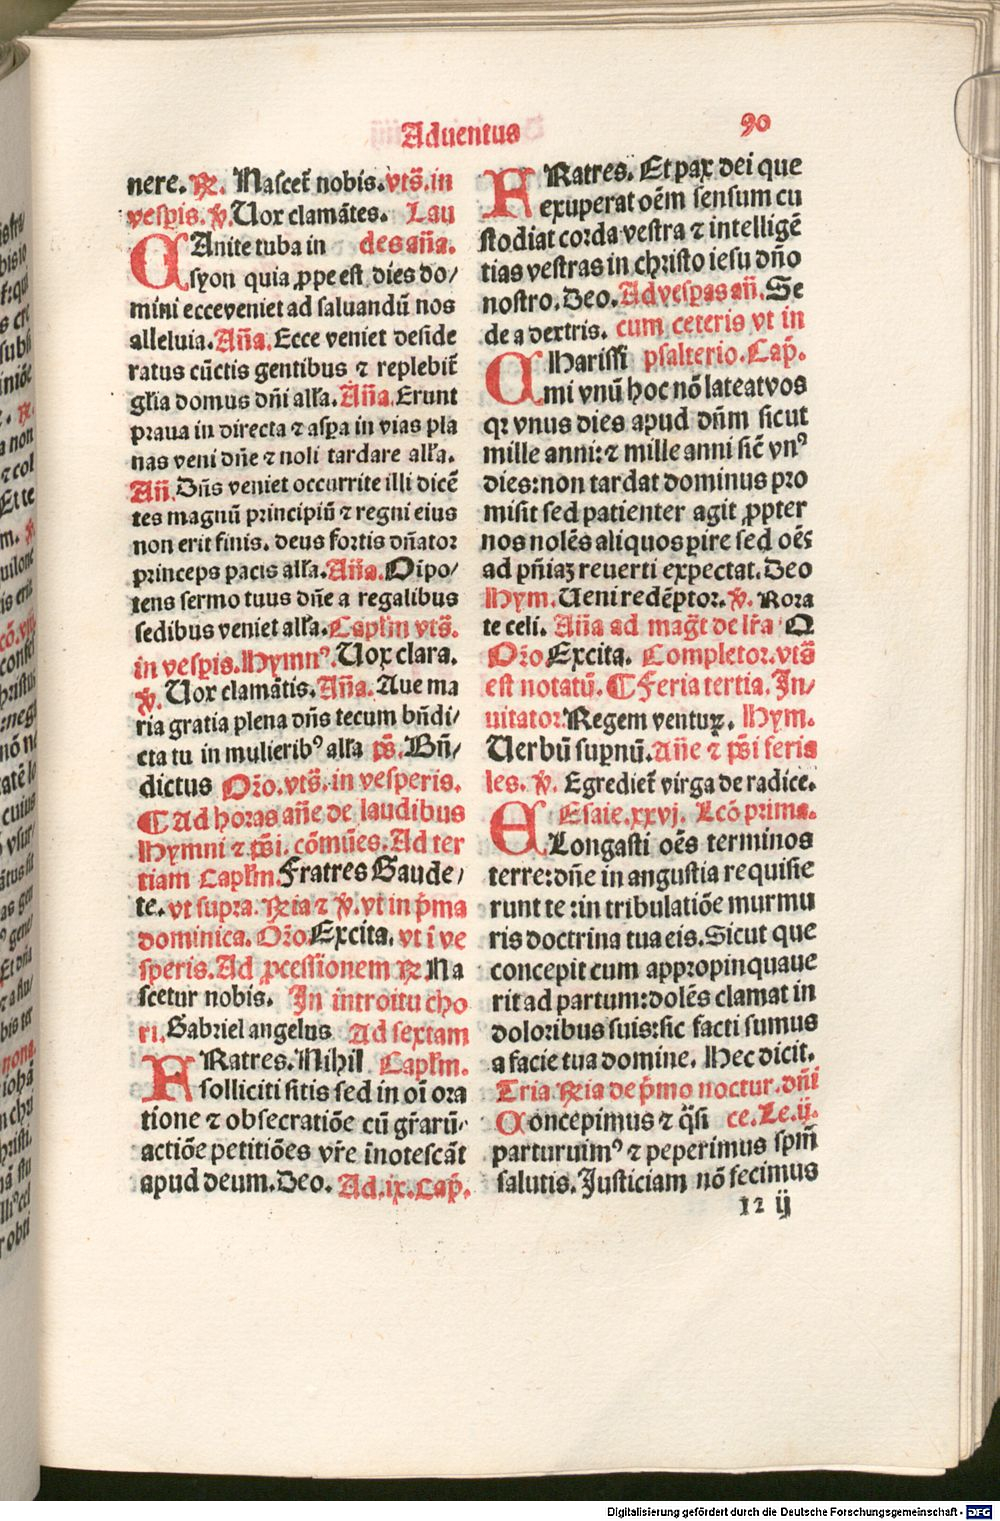 Aduentus
90
nere. ꝶ. Nascet᷑ nobis. vts̄. in
vesꝑis. ℣. Uox clamātes. Lau
CAnite tuba in des an̄a.
syon quia ꝓpe est dies do/
mini ecce veniet ad saluandū nos
alleluia. An̄a. Ecce veniet deside
ratus cūctis gentibus ⁊ replebit᷑
gl̄ia domus dn̄i all̄a. An̄a. Erunt
praua in directa ⁊ asꝑa in vias pla
nas veni dn̄e ⁊ noli tardare all̄a.
An̄. Dn̄s veniet occurrite illi dicē
tes magnū principiū ⁊ regni eius
non erit finis. deus fortis dn̄ator
princeps pacis all̄a. An̄a. Oīpo/
tens sermo tuus dn̄e a regalibus
sedibus veniet all̄a. Capl̄m vts̄.
in vesꝑis. Hymnꝰ. Uox clara.
℣. Uox clamātis. An̄a. Aue ma
ria gratia plena dn̄s tecum bn̄di/
cta tu in mulieribꝰ all̄a ps̄. Bn̄/
dictus Or̄o. vts̄. in vesperis.
¶ Ad horas an̄e de laudibus
Hymni ⁊ ps̄i. cōmūes. Ad ter
tiam Capl̄m. Fratres Gaude/
te. vt supra. ꝶia ⁊ ℣. vt in p̄ma
dominica. Or̄o. Excita. vt ī ve
speris. Ad ꝓcessionem ꝶ Na
scetur nobis. In introitu cho
ri. Gabriel angelus Ad sextam
FRatres. Nihil Capl̄m.
solliciti sitis sed in oī ora
tione ⁊ obsecratiōe cū gr̄arū/
actiōe petitiōes vr̄e īnotescāt
apud deum. Deo. Ad. ix. Cap̄.
FRatres. Et pax dei que
exuperat oēm sensum cu
stodiat corda vestra ⁊ intelligē
tias vestras in christo iesu dn̄o
nostro. Deo. Ad vesꝑas an̄. Se
de a dextris. cum ceteris vt in
CHarissi psalterio. Cap̄.
mi vnū hoc nō lateat vos
qꝛ vnus dies apud dn̄m sicut
mille anni: ⁊ mille anni sic̄ vnꝰ
dies: non tardat dominus pro
misit sed patienter agit ꝓpter
nos nolēs aliquos ꝑire sed oēs
ad pn̄iaꝫ reuerti expectat. Deo
Hym. Ueni redēptor. ℣. Rora
te celi. An̄a ad maḡt de lr̄a O
Or̄o Excita. Completor. vts̄
est notatū. ¶ Feria tertia. In/
uitator. Regem venturꝝ. Hym.
Uerbū suꝑnū. An̄e ⁊ ps̄i feria
les. ℣. Egrediet᷑ virga de radice.
Esaie. xxvj. Lcō prima.
ELongasti oēs terminos
terre: dn̄e in angustia requisie
runt te: in tribulatiōe murmu
ris doctrina tua eis. Sicut que
concepit cum appropinquaue
rit ad partum: dolēs clamat in
doloribus suis: sic facti sumus
a facie tua domine. Hec dicit.
Tria ꝶia de p̄mo noctur. dn̄i
Concepimus ⁊ q̄si ce. Le. ij.
parturuimꝰ ⁊ peperimus spm̄
salutis. Justiciam nō fecimus
12 ij
Digitalisierung gefördert durch die Deutsche Forschungsgemeinschaft - DFG